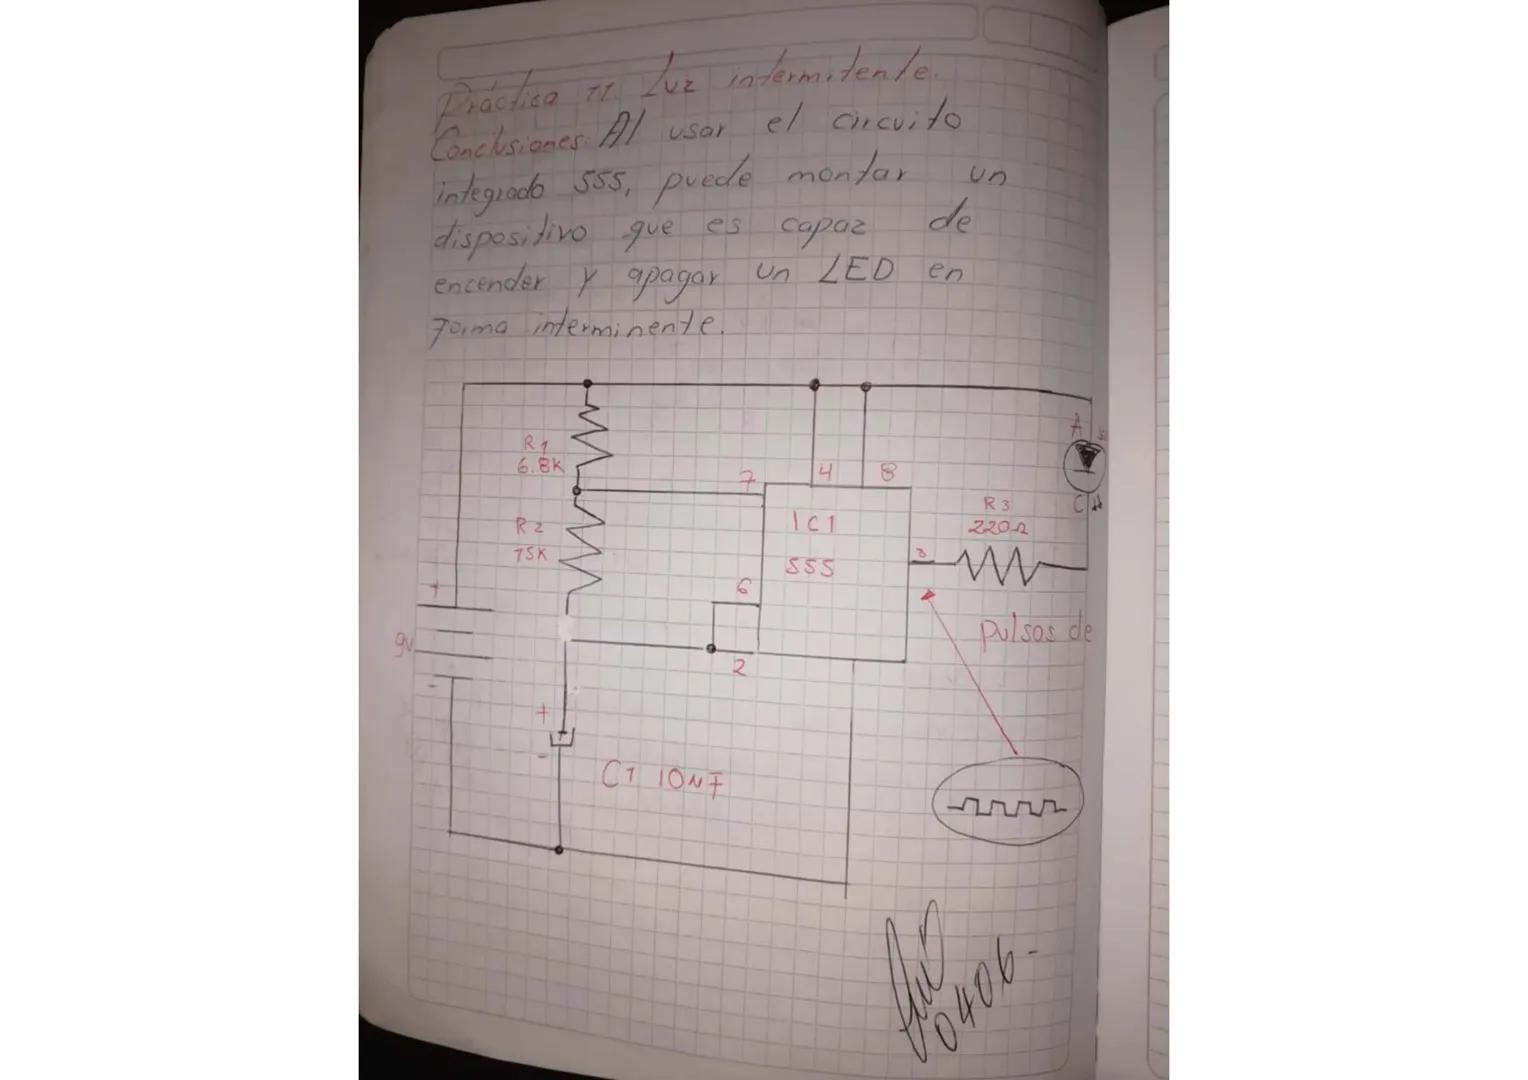 Práctica 11 Luz intermitente.
Conclusiones: Al usar el circuito
integrado 555, puede montar un
dispositivo que es capaz de
encender y apagar un LED en
Forma interminente.
R1
6.8K
7
4
8
A
R2
75K
IC1
555
R3
220Ω
C
3
6
+
9v
-
2
pulsos de
+
-
C1 10uF
0406-